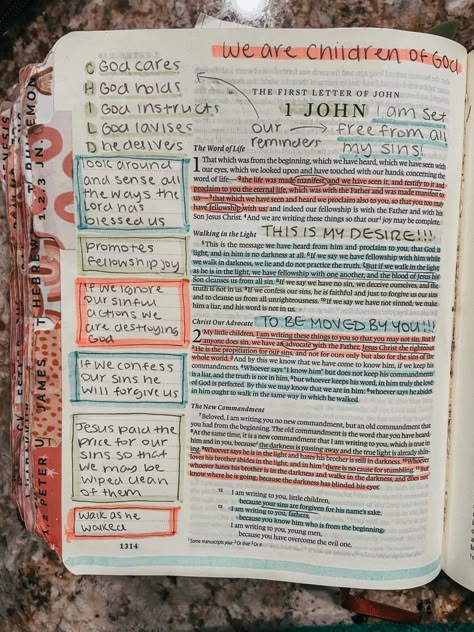 We are CHILDREN OF GOD
C God cares
H God holds
I God instructs
L God lavises
D he delivers
THE FIRST LETTER OF JOHN
1 JOHN
I am set
free from all
my sins!
our
reminders
look around
and sense all
the ways the
Lord has
blessed us
promotes
fellowship joy
If we ignore
our sinful
actions we
are destroying
God
If we confess
our sins he
will forgive us
Jesus paid the
price for our
sins so that
we may be
wiped clean
of them
Walk as he
walked
1314
The Word of Life
1 That which was from the beginning, which we have heard, which we have seen with
our eyes, which we looked upon and have touched with our hands, concerning the
word of life— 2 the life was made manifest, and we have seen it, and testify to it and
proclaim to you the eternal life, which was with the Father and was made manifest to
us— 3 that which we have seen and heard we proclaim also to you, so that you too may
have fellowship with us; and indeed our fellowship is with the Father and with his
Son Jesus Christ. 4 And we are writing these things so that our 1 joy may be complete.
Walking in the Light
THIS IS MY DESIRE!!!
5 This is the message we have heard from him and proclaim to you, that God is
light, and in him is no darkness at all. 6 If we say we have fellowship with him while
we walk in darkness, we lie and do not practice the truth. 7 But if we walk in the light,
as he is in the light, we have fellowship with one another, and the blood of Jesus his
Son cleanses us from all sin. 8 If we say we have no sin, we deceive ourselves, and the
truth is not in us. 9 If we confess our sins, he is faithful and just to forgive us our sins
and to cleanse us from all unrighteousness. 10 If we say we have not sinned, we make
him a liar, and his word is not in us.
Christ Our Advocate
TO BE MOVED BY YOU!!!
2 My little children, I am writing these things to you so that you may not sin. But if
anyone does sin, we have an advocate with the Father, Jesus Christ the righteous.
2 He is the propitiation for our sins, and not for ours only but also for the sins of the
whole world. 3 And by this we know that we have come to know him, if we keep his
commandments. 4 Whoever says "I know him" but does not keep his commandments
is a liar, and the truth is not in him, 5 but whoever keeps his word, in him truly the love
of God is perfected. By this we may know that we are in him: 6 whoever says he abides
in him ought to walk in the same way in which he walked.
The New Commandment
7 Beloved, I am writing you no new commandment, but an old commandment that
you had from the beginning. The old commandment is the word that you have heard.
8 At the same time, it is a new commandment that I am writing to you, which is true in
him and in you, because 2 the darkness is passing away and the true light is already shining.
9 Whoever says he is in the light and hates his brother is still in darkness. 10 Whoever
loves his brother abides in the light, and in him 3 there is no cause for stumbling. 11 But
whoever hates his brother is in the darkness and walks in the darkness, and does not
know where he is going, because the darkness has blinded his eyes.
12 I am writing to you, little children,
because your sins are forgiven for his name's sake.
13 I am writing to you, fathers,
because you know him who is from the beginning.
I am writing to you, young men,
because you have overcome the evil one.